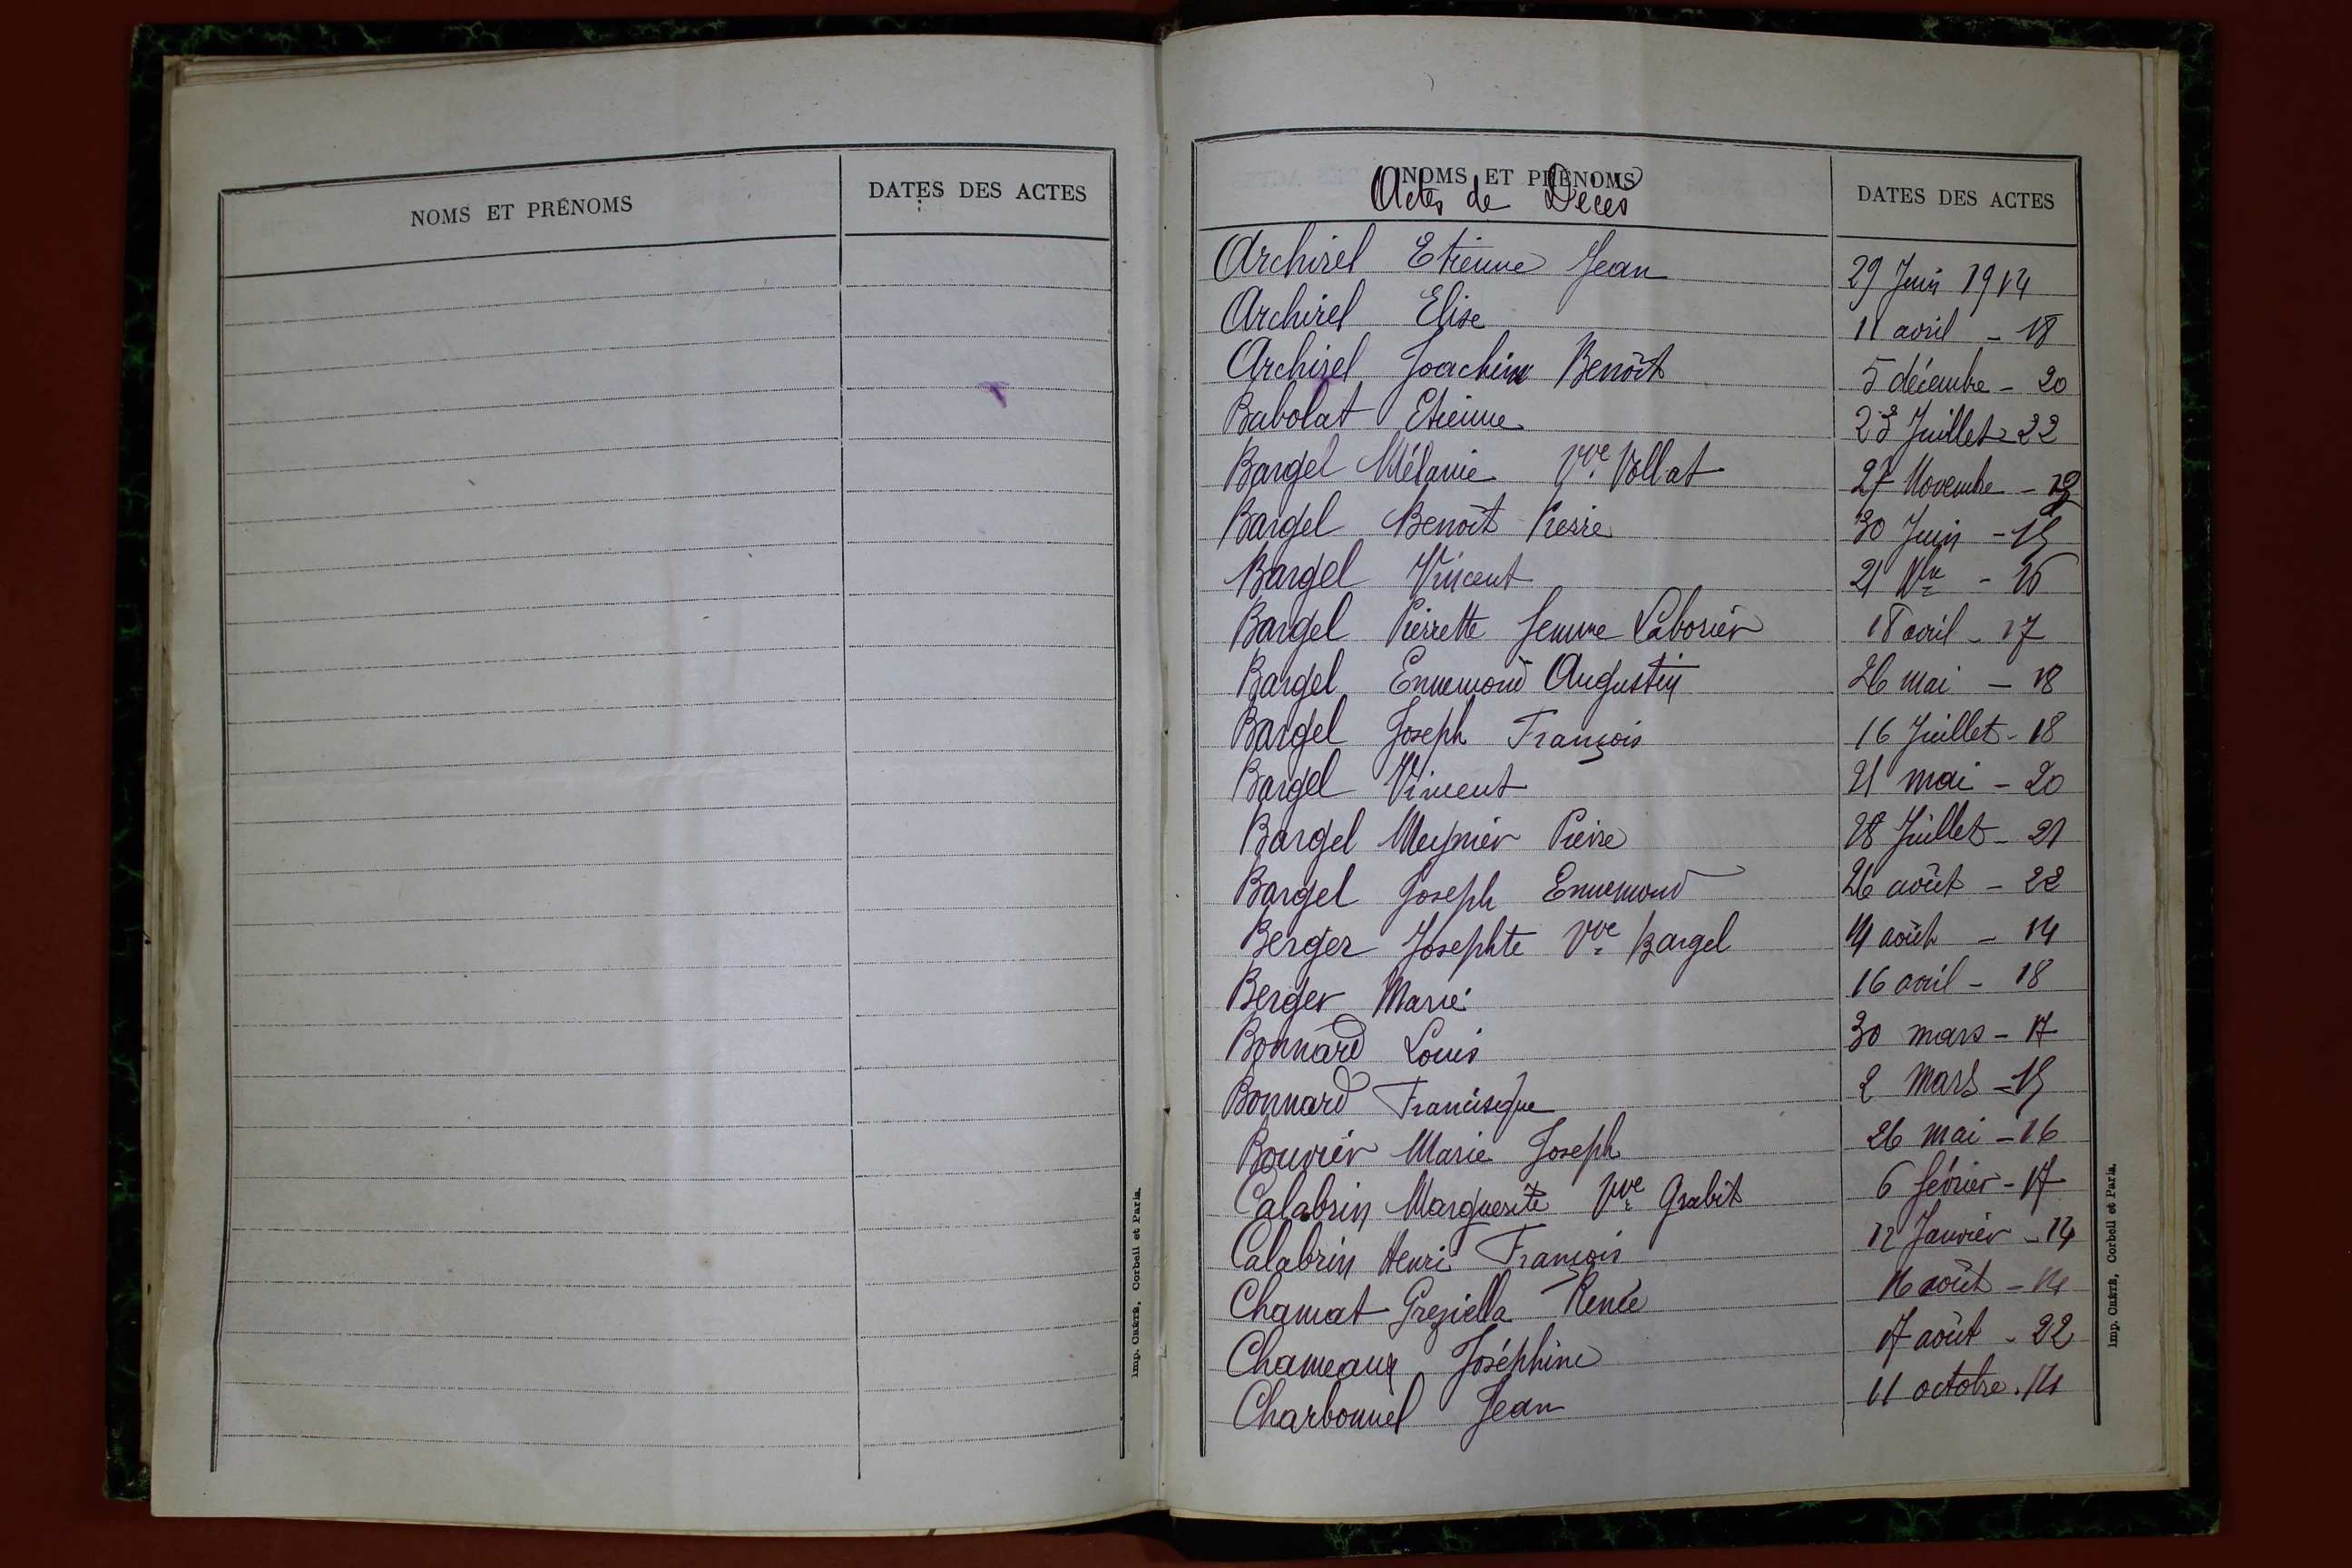 NOMS ET PRÉNOMS DATES DES ACTES
Imp. CRÉTÉ, Corbeil et Paris.
NOMS ET PRÉNOMS DATES DES ACTES
Actes de Décès
Archirel Etienne Jean 29 Juin 1914
Archirel Elise 11 avril - 18
Archirel Joachim Benoît 5 décembre - 20
Babolat Etienne 23 Juillet - 22
Bargel Mélanie Vve Vollat 27 Novembre -
Bargel Benoît Pierre 30 Juin - 15
Bargel Vincent 21 - 16
Bargel Pierrette femme Laborier 18 avril - 17
Bargel Ennemond Augustin 26 mai - 18
Bargel Joseph François 16 Juillet - 18
Bargel Vincent 21 mai - 20
Bargel Meynier Pierre 28 Juillet - 21
Bargel Joseph Ennemond 26 août - 22
Berger Josephte Vve Bargel 14 août - 14
Berger Marie 16 avril - 18
Bonnard Louis 30 mars - 17
Bonnard Francisque 2 Mars - 15
Bouvier Marie Joseph 26 mai - 16
Calabrin Marguerite Vve Grabit 6 février - 17
Calabrin Henri François 12 Janvier - 14
Chamat Greziella Renée 16 août - 14
Chameaux Joséphine 17 août - 22
Charbonnel Jean 11 octobre - 14
Imp. CRÉTÉ, Corbeil et Paris.